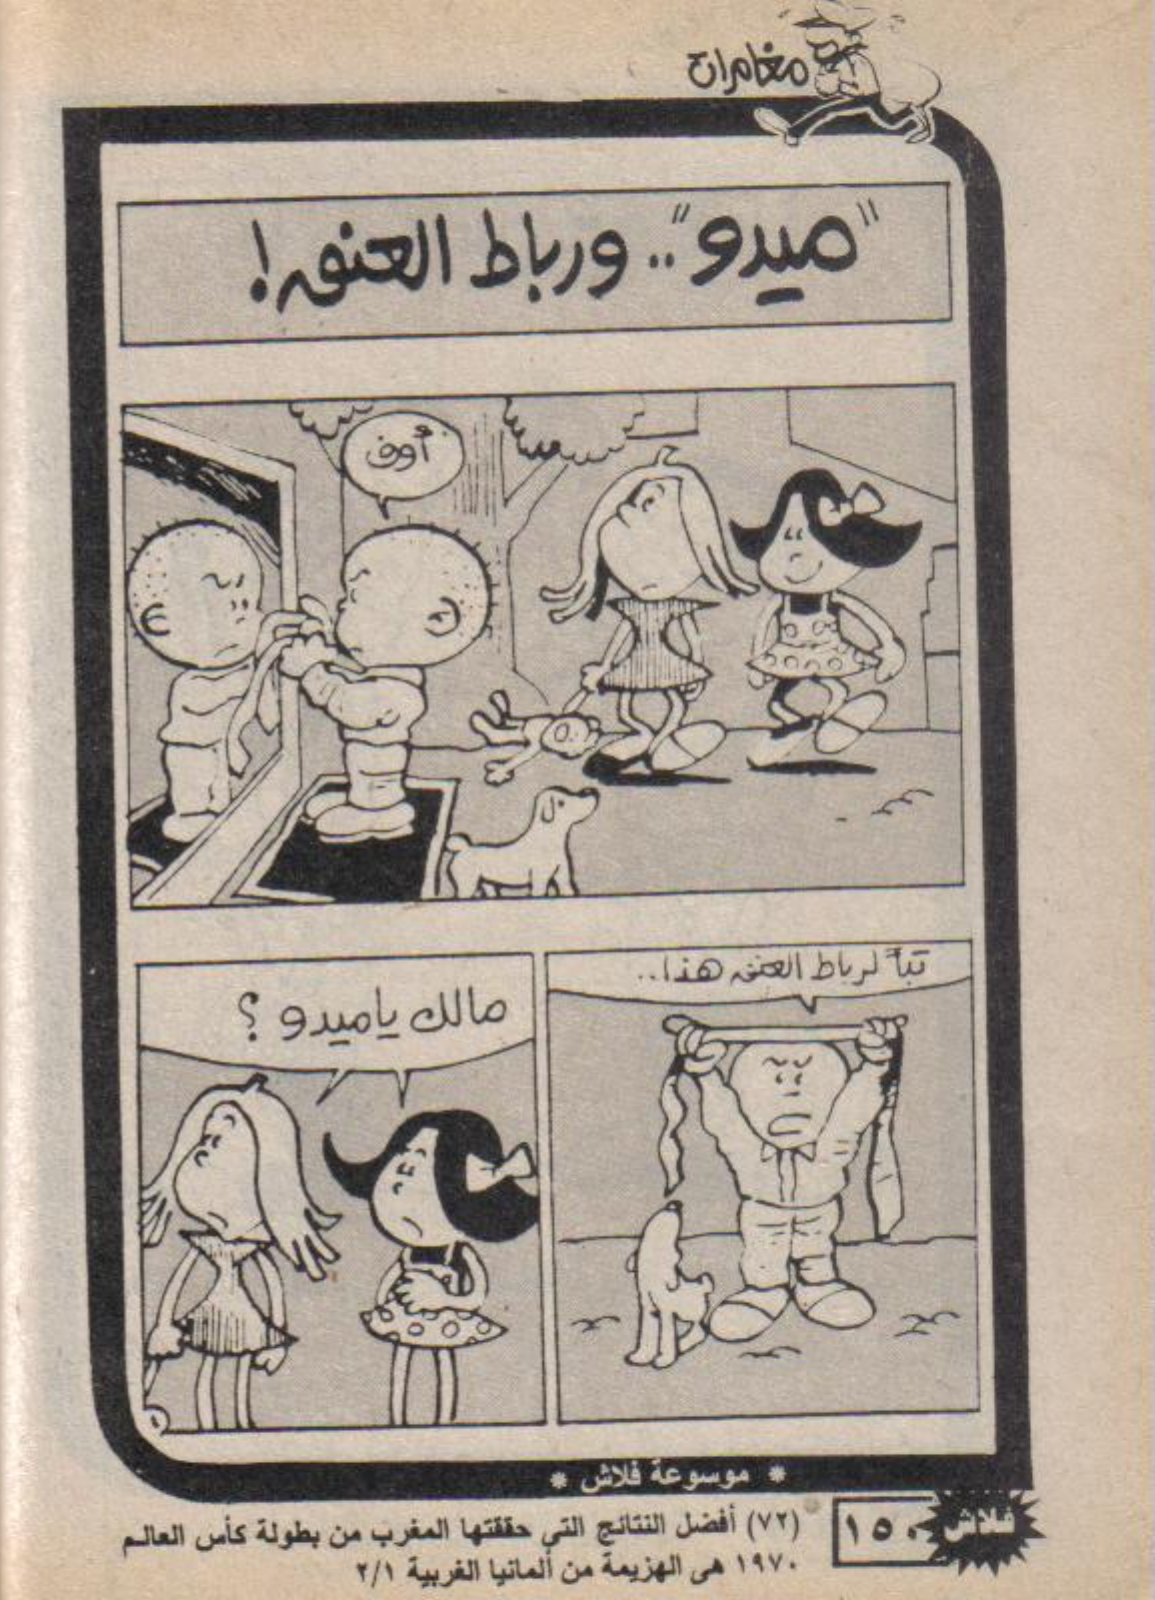 مغامرات
"ميدو".. ورباط العنق!
أوف
تباً لرباط العنق هذا..
مالك ياميدو ؟
* موسوعة فلاش *
فلاش
١٥٠
(٧٢) أفضل النتائج التي حققتها المغرب من بطولة كأس العالم
١٩٧٠ هى الهزيمة من ألمانيا الغربية ٢/١